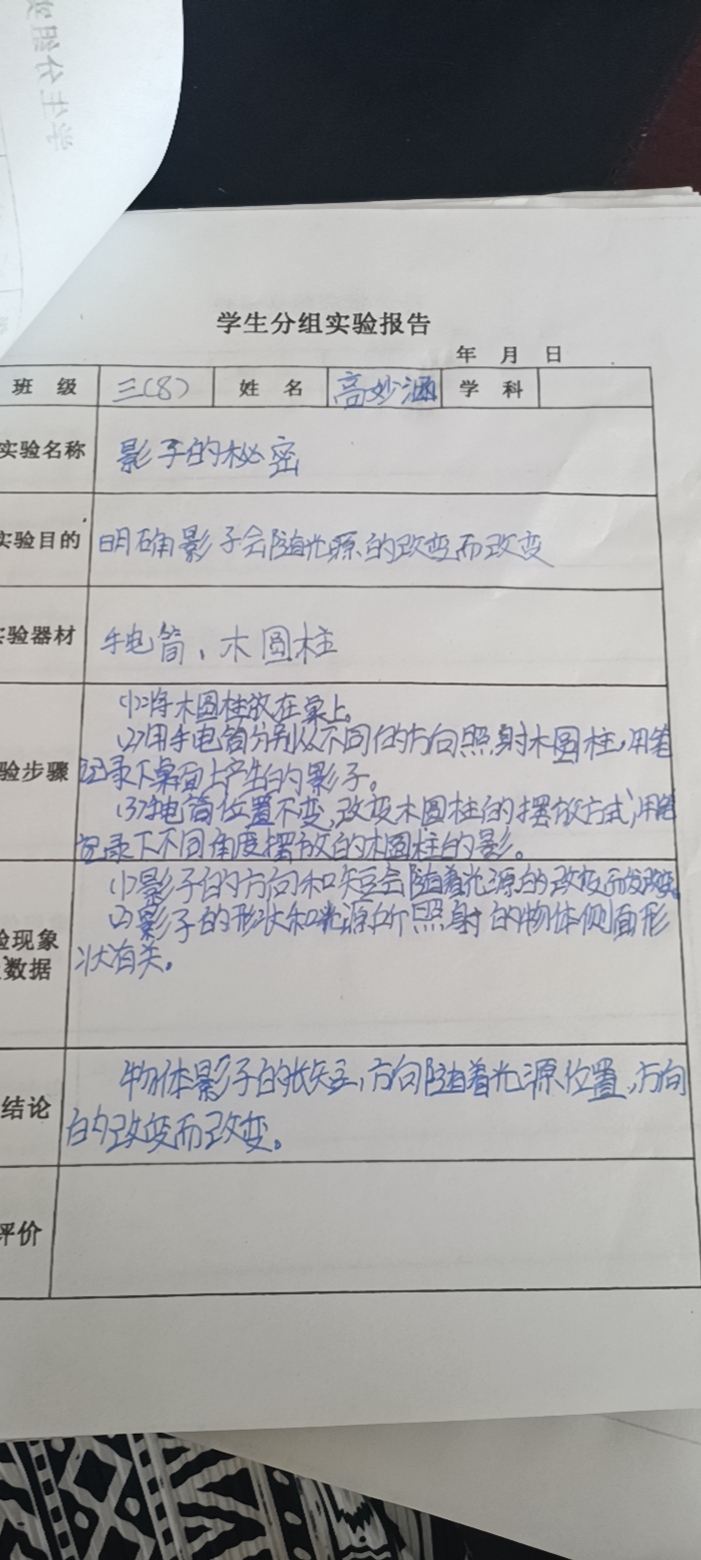 学生分组实验报告
年 月 日
班 级 三(8) 姓 名 高妙涵 学 科
实验名称 影子的秘密
实验目的 明确影子会随光源的改变而改变
实验器材 手电筒、木圆柱
(1)将木圆柱放在桌上。
(2)用手电筒分别从不同的方向照射木圆柱,用笔
验步骤 记录下桌面上产生的影子。
(3)手电筒位置不变,改变木圆柱的摆放方式,用笔
记录下不同角度摆放的木圆柱的影。
(1)影子的方向和长短会随着光源的改变而改变。
(2)影子的形状和光源所照射的物体侧面形
验现象 状有关。
数据
物体影子的长短、方向随着光源位置、方向
结论 的改变而改变。
评价